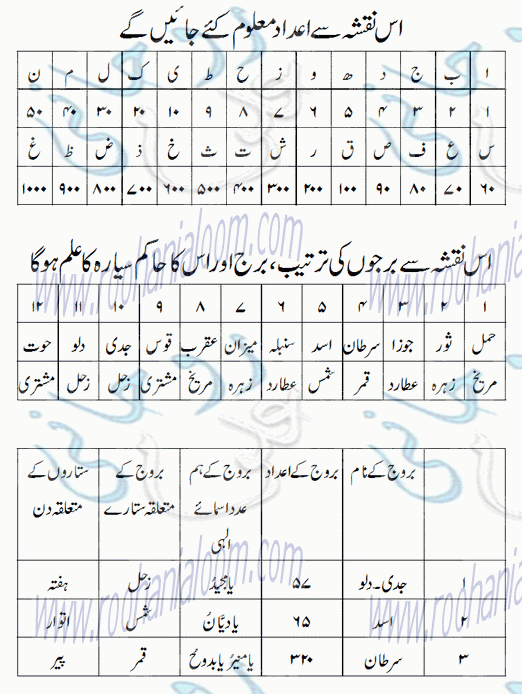 اس نقشہ سے اعداد معلوم کئے جائیں گے
ا ب ج د ھ و ز ح ط ی ک ل م ن
۱ ۲ ۳ ۴ ۵ ۶ ۷ ۸ ۹ ۱۰ ۲۰ ۳۰ ۴۰ ۵۰
س ع ف ص ق ر ش ت ث خ ذ ض ظ غ
۶۰ ۷۰ ۸۰ ۹۰ ۱۰۰ ۲۰۰ ۳۰۰ ۴۰۰ ۵۰۰ ۶۰۰ ۷۰۰ ۸۰۰ ۹۰۰ ۱۰۰۰
www.rodhanialoom.com
اس نقشہ سے برجوں کی ترتیب، برج اور اس کا حاکم سیارہ کا علم ہوگا
۱ ۲ ۳ ۴ ۵ ۶ ۷ ۸ ۹ ۱۰ ۱۱ ۱۲
حمل ثور جوزا سرطان اسد سنبلہ میزان عقرب قوس جدی دلو حوت
مریخ زہرہ عطارد قمر شمس عطارد زہرہ مریخ مشتری زحل زحل مشتری
بروج کے نام بروج کے اعداد بروج کے ہم بروج کے ستاروں کے
عدد اسمائے متعلقہ ستارے متعلقہ دن
الٰہی
۱ جدی۔دلو ۵۷ یامجیدُ زحل ہفتہ
۲ اسد ۶۵ یادیّانُ شمس اتوار
۳ سرطان ۳۲۰ یامنیرُ یابدوحُ قمر پیر
www.rodhanialoom.com